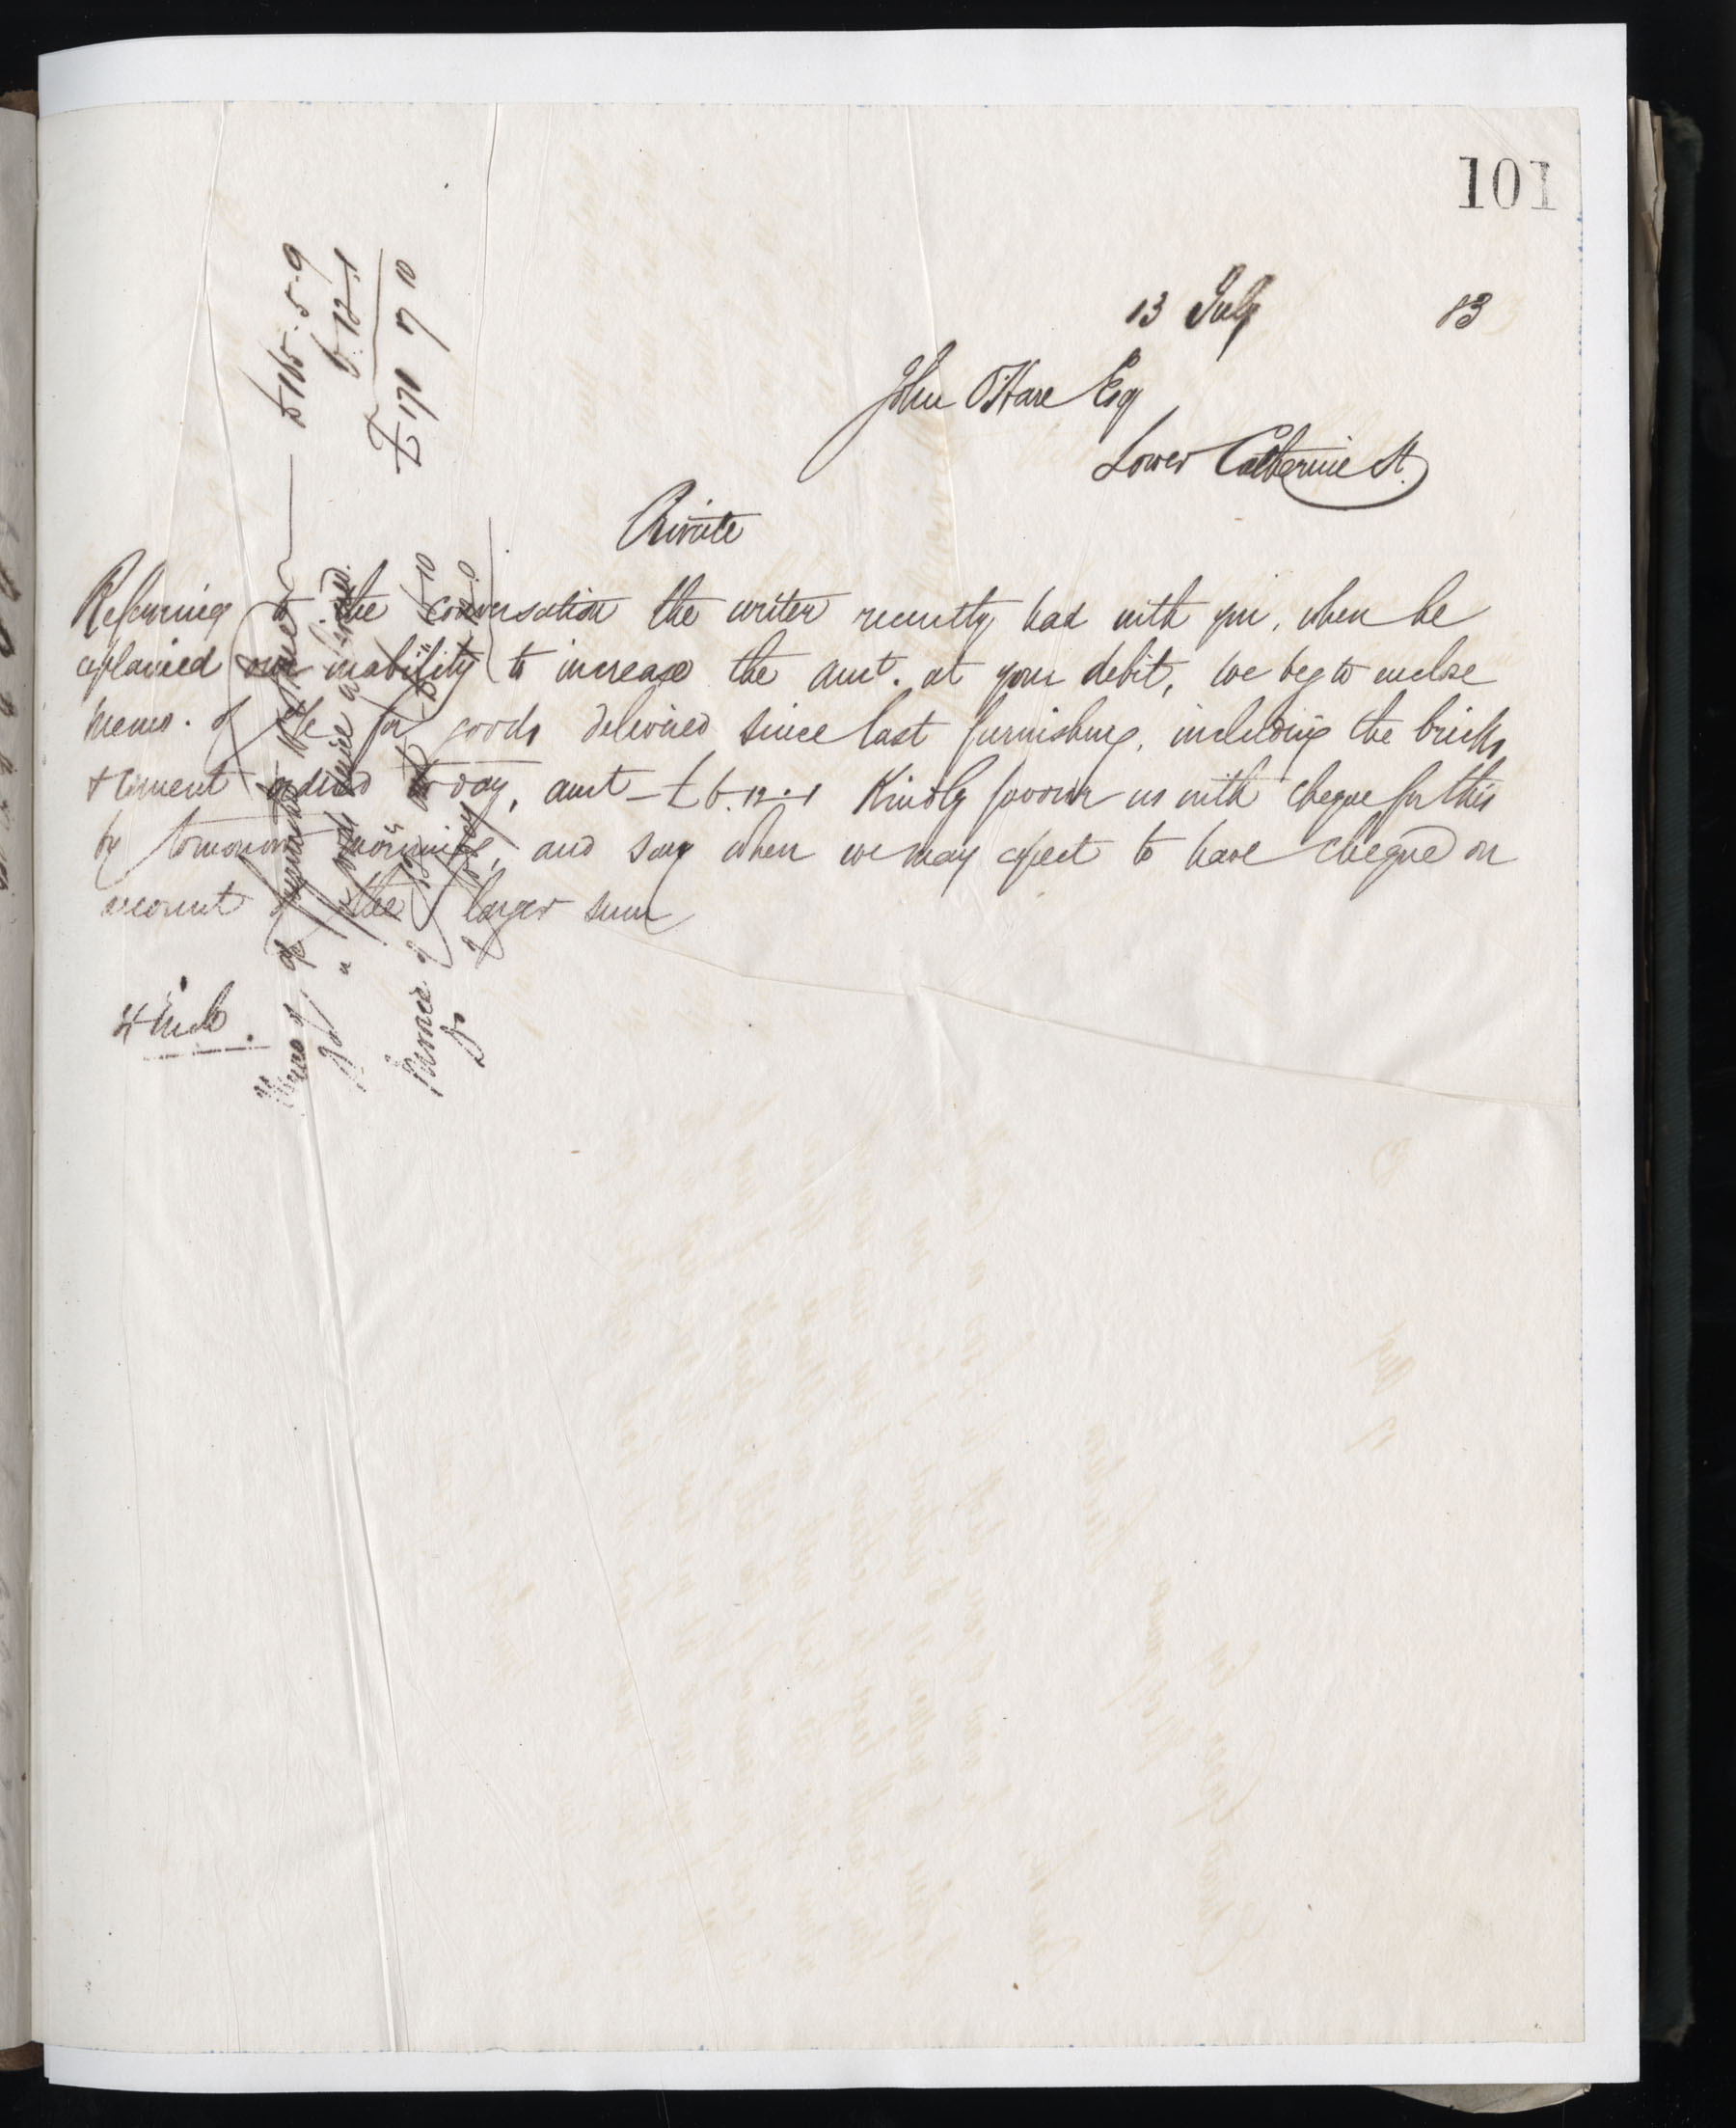 101
13 July 83
John O'Hare Esq
Lower Catherine St.
Private
Referring to the conversation the writer recently had with you, when he
explained our inability to increase the amt. at your debit, we beg to enclose
memo. of a/c for goods delivered since last furnishing, including the bricks
& cement ordered to day, amt - £6.12.1 Kindly favour us with cheque for this
by tomorrow morning, and say when we may expect to have cheque on
account of the larger sum
4 Incls.
Memo of a/c furnished £165.5.9
" goods since 6.12.1
£171 7 10
Invoice of